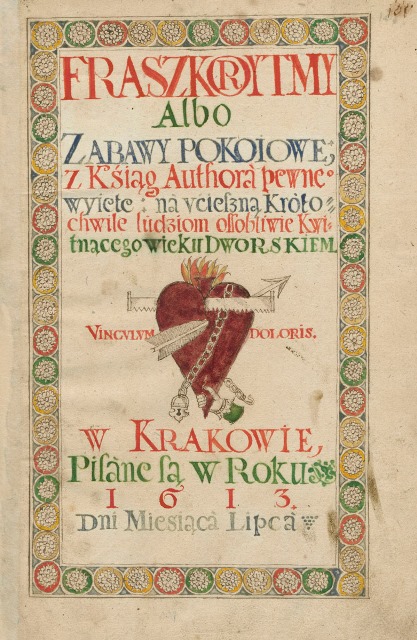 FRASZKORYTMY
Albo
ZABAWY POKOIOWE;
z Kśiąg Authorà pewne°
wyięte: nà vćieszną Króto⸗
chwilę ludźiom ossobliwie Kwi⸗
tnącego wieku DWORSKIEM
VINCVLVM DOLORIS.
W KRAKOWIE,
Pisàne są w Roku
1613.
Dni Mieśiącà Lipcà